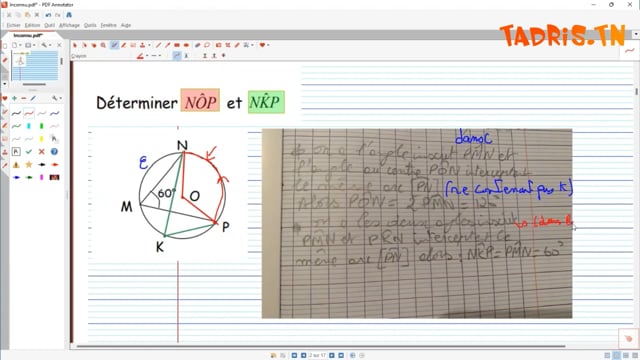 Inconnu.pdf* - PDF Annotator
Fichier Edition Affichage Outils Fenêtre Aide
TADRIS.TN
Crayon
Déterminer NÔP et NK̂P
dans C
* on a l'angle inscrit PMN et
l'angle au centre PON interceptent
le même arc [PN] (ne contenant pas K)
Alors PON = 2 PMN = 120°
on a les deux angles inscrits
PMN et PKN interceptent le
même arc [PN] alors : NKP = PMN = 60°
N
60°
O
M
P
K
2 sur 17